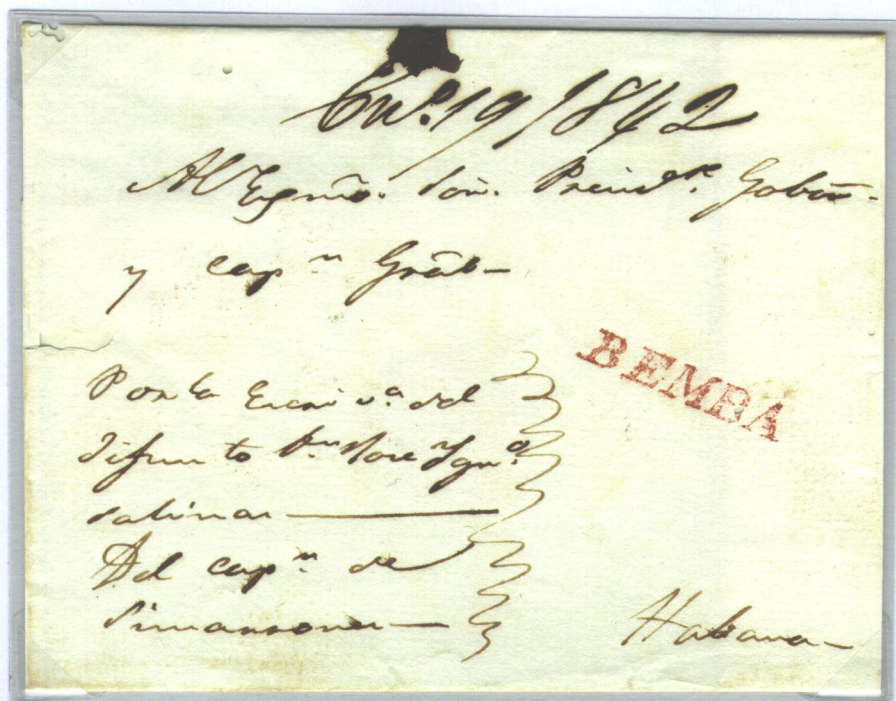 En.º 19/842
Al Exmõ. Sõr. Presid.te Gobõr.
y cap.n Grãl
BEMBA
Por la Escriv.a del
difunto D.n Jose Ygn.o
salinas
Del cap.n de
Simarrones
Habana